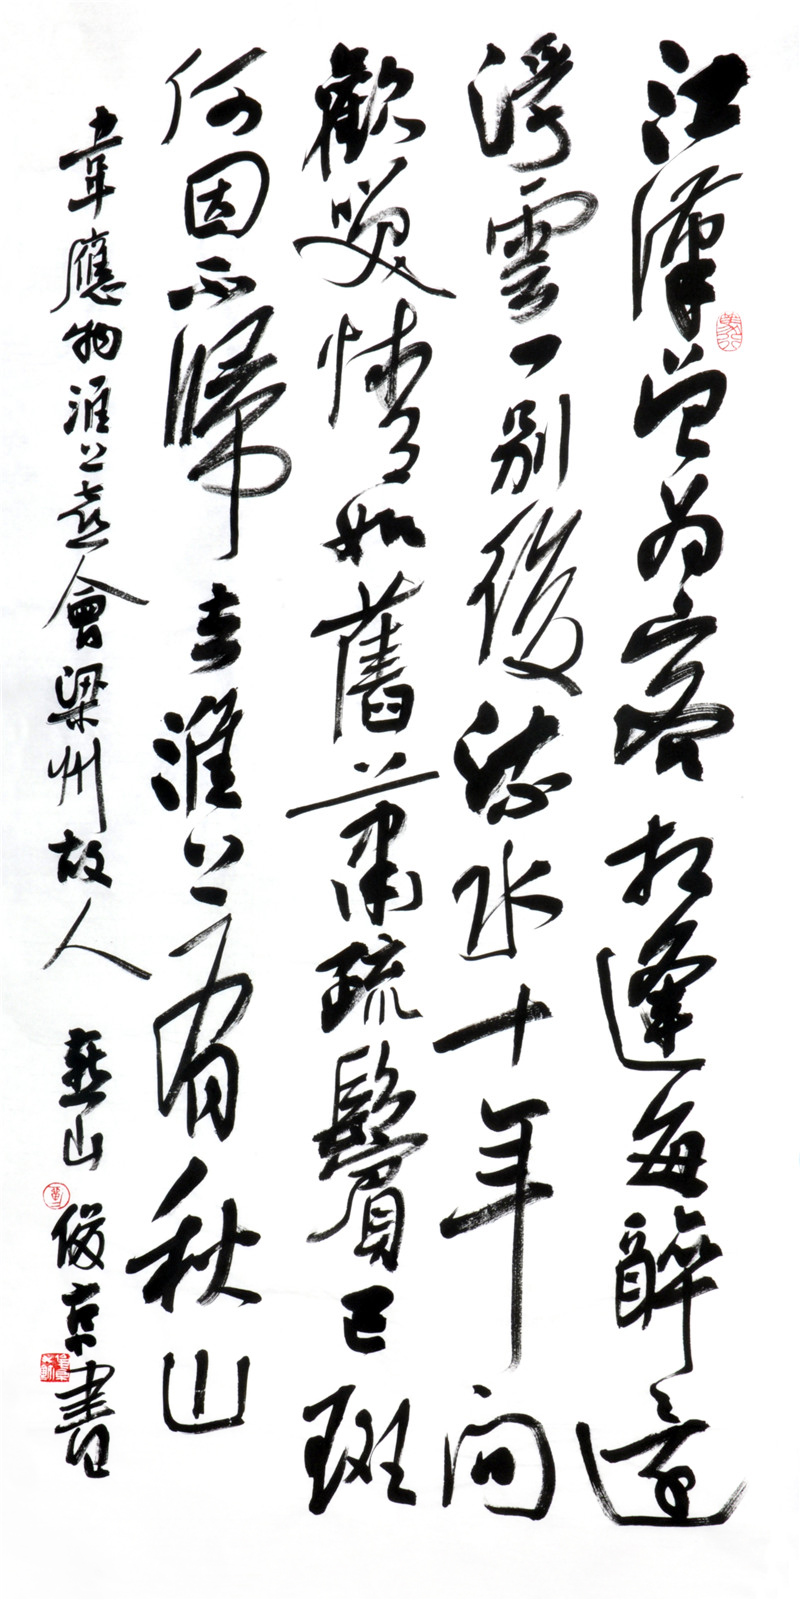 江漢曾為客相逢每醉還
浮雲一別後流水十年間
歡笑情如舊蕭疏鬢已斑
何因不歸去淮上有秋山
韋應物淮上喜會梁州故人 燕山俊京書